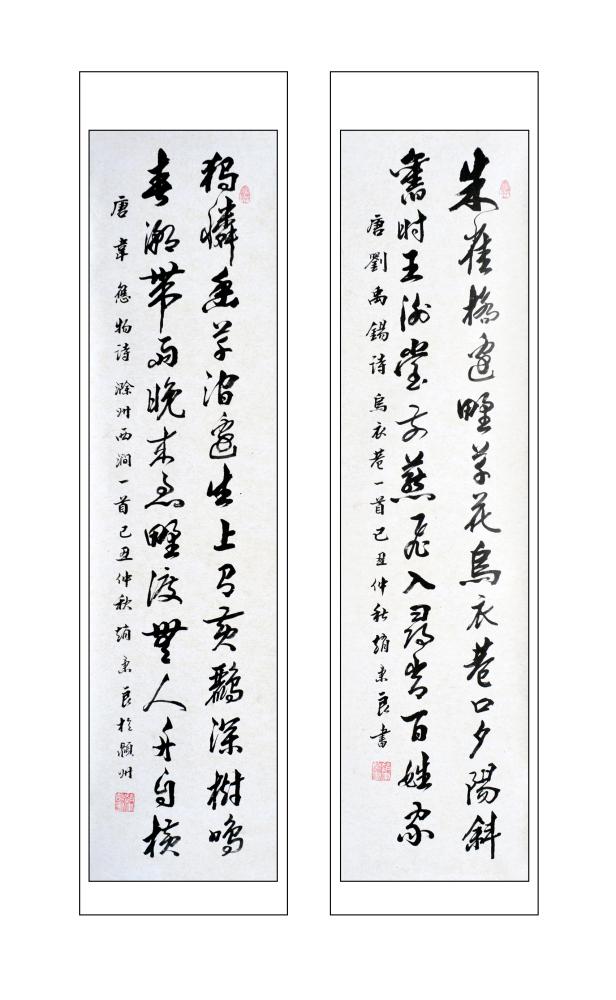 朱雀橋邊野草花烏衣巷口夕陽斜
舊时王謝堂前燕飛入尋常百姓家
唐劉禹錫詩烏衣巷一首己丑仲秋趙秉良書
獨憐幽草澗邊生上有黃鸝深樹鳴
春潮帶雨晚來急野渡無人舟自橫
唐韋應物詩滁州西澗一首己丑仲秋趙秉良於潁州